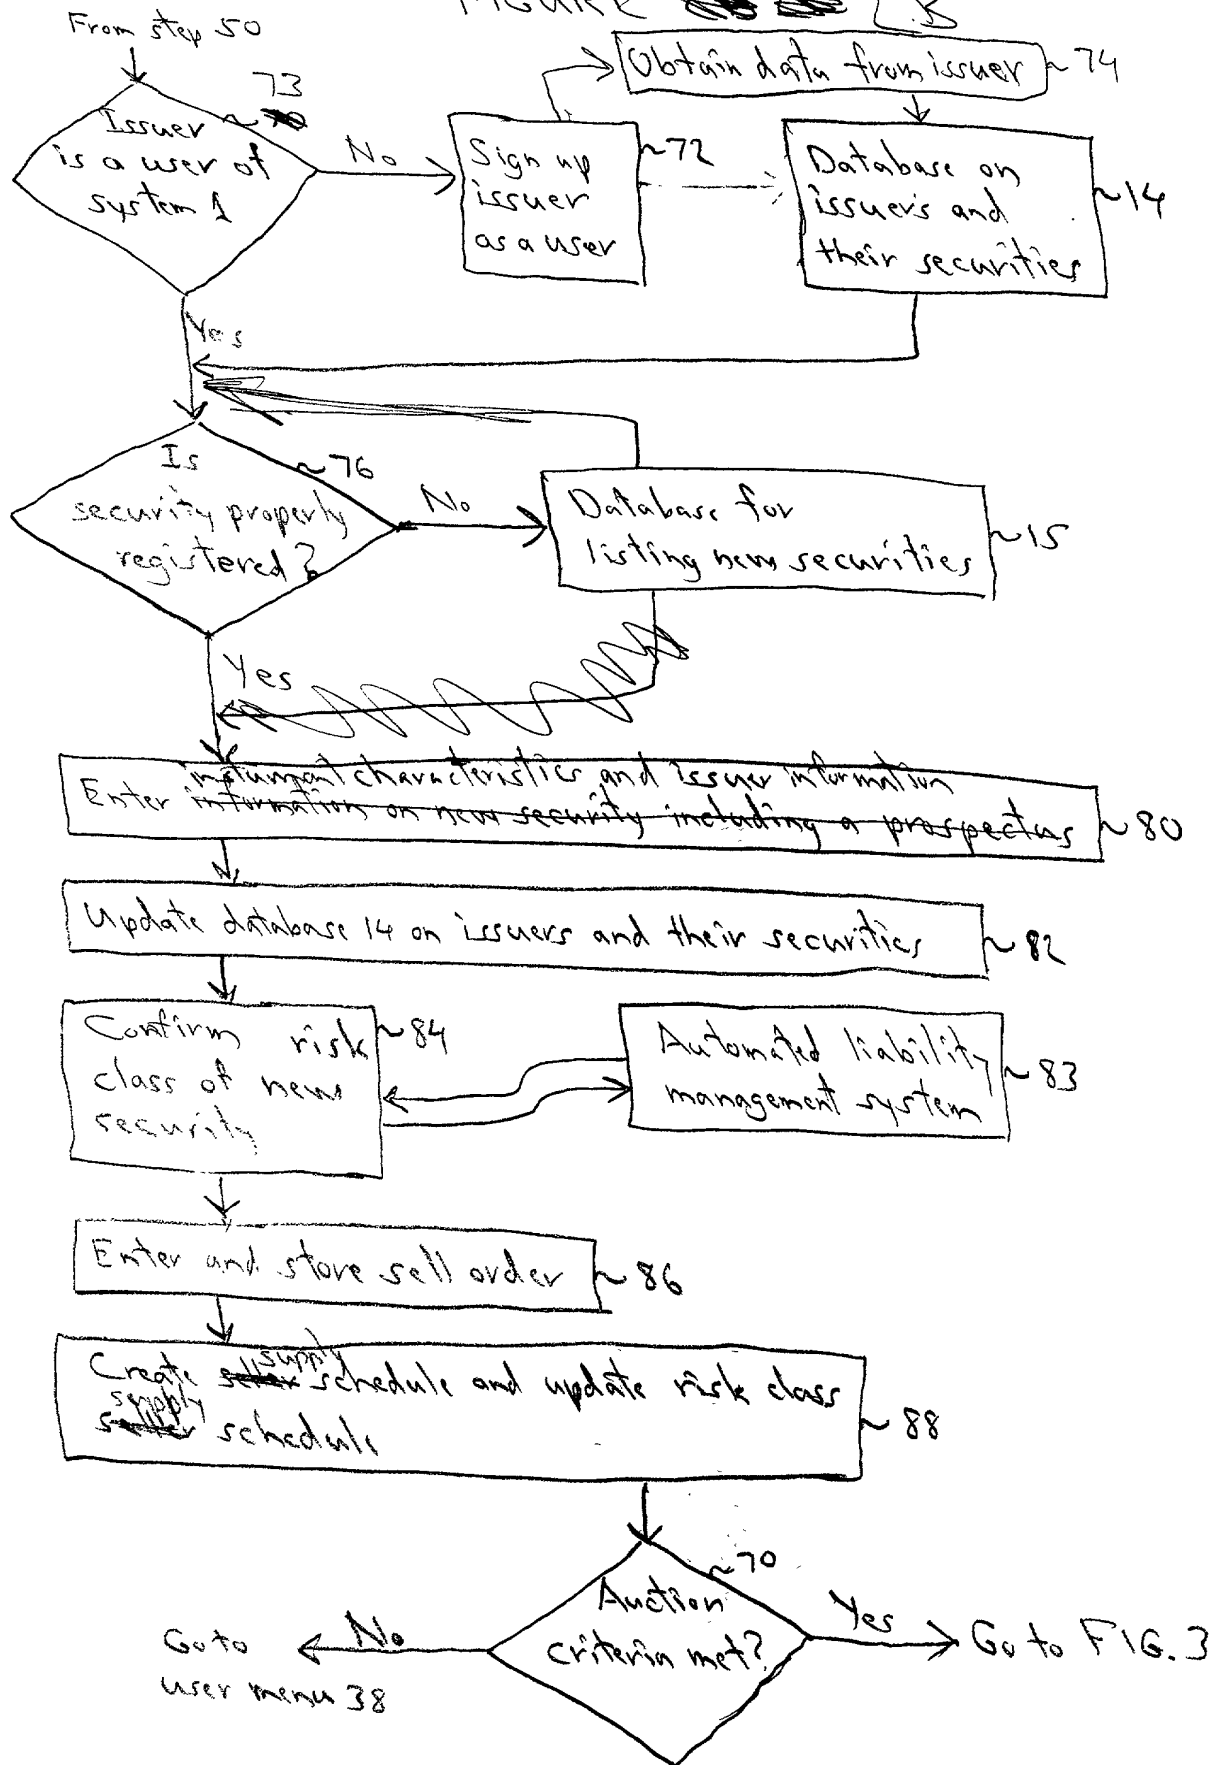 FIGURE 2B
From step 50
Obtain data from issuer ~74
73
Issuer
is a user of
system 1
No
Sign up
issuer
as a user
~72
Database on
issuers and
their securities
~14
Yes
Is
security properly
registered?
~76
No
Database for
listing new securities
~15
Yes
instrument characteristics and issuer information
Enter information on new security including a prospectus ~80
Update database 14 on issuers and their securities ~82
Confirm risk
class of new
security
~84
Automated liability
management system
~83
Enter and store sell order ~86
supply
Create seller schedule and update risk class
supply
seller schedule
~88
~70
Auction
criteria met?
No
Go to
user menu 38
Yes
Go to FIG. 3